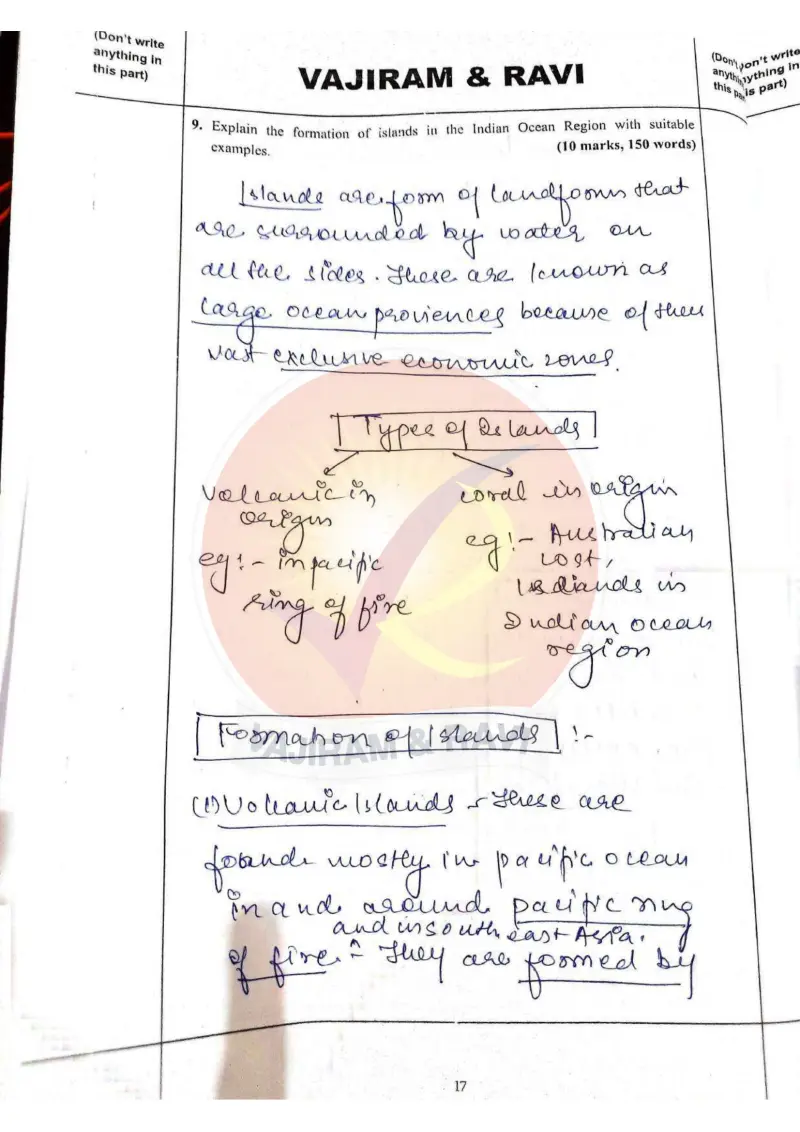 (Don't write
anything in
this part)
VAJIRAM & RAVI
(Don't write
anything in
this part)
9. Explain the formation of islands in the Indian Ocean Region with suitable
examples. (10 marks, 150 words)
Islands are form of landforms that
are surrounded by water on
all the sides. These are known as
large ocean proviences because of their
vast exclusive economic zones.
Types of Islands
Volcanic in
origin
eg:- in pacific
ring of fire
coral in origin
eg:- Australian
cost,
Islands in
Indian ocean
region
Formation of Islands :-
(1) Volcanic Islands - These are
found mostly in pacific ocean
in and around pacific ring
and in south east Asia.
of fire. ^ They are formed by
VAJIRAM & RAVI
17